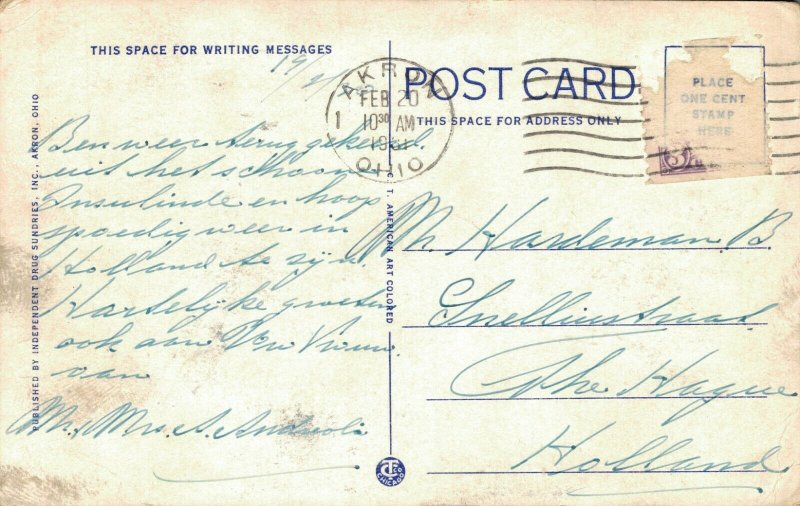 THIS SPACE FOR WRITING MESSAGES
19/2/
Ben weer teruggekeerd
uit het schoone
Insulinde en hoop
spoedig weer in
Holland te zijn.
Hartelijke groeten
ook aan Uw Vrouw.
van
Mr. Mrs A. Andreoli
PUBLISHED BY INDEPENDENT DRUG SUNDRIES, INC., AKRON, OHIO
C. T. AMERICAN ART COLORED
CTCO
CHICAGO
AKRON
1
FEB 20
10 30 AM
1951
OHIO
POST CARD
THIS SPACE FOR ADDRESS ONLY
PLACE
ONE CENT
STAMP
HERE
3
M. Hardeman B.
Snelliusstraat
The Hague
Holland